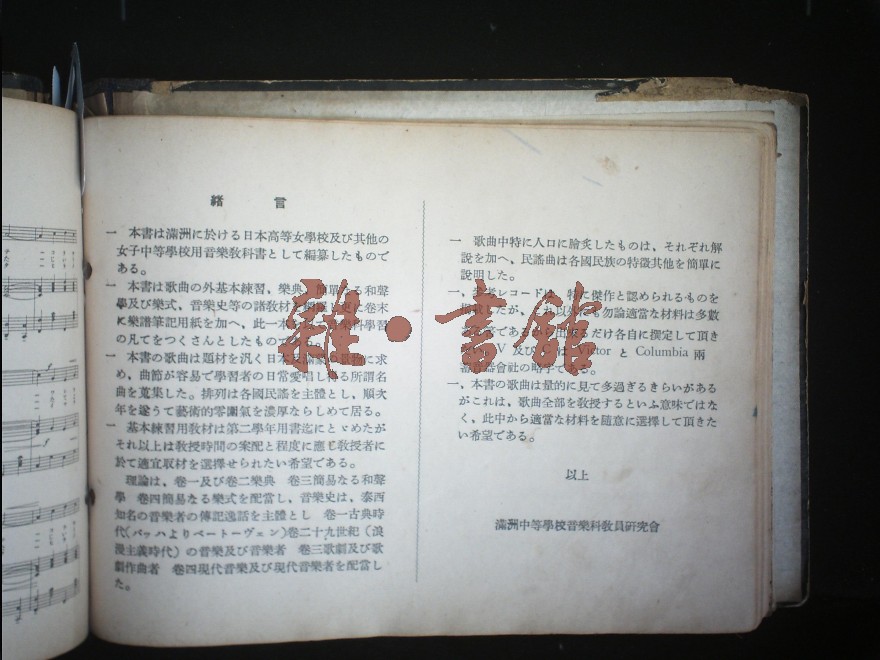 緒言
一 本書は滿洲に於ける日本高等女學校及び其他の
女子中等學校用音樂敎科書として編纂したもので
ある。
一 本書は歌曲の外基本練習、樂典、簡單なる和聲
學及び樂式、音樂史等の諸敎材を 卷末
に樂譜筆記用紙を加へ、此一本 學習
の凡てをつくさんとしたもの
一 本書の歌曲は題材を汎く日本及 に求
め、曲節が容易で學習者の日常愛唱し得る所謂名
曲を蒐集した。排列は各國民謠を主體とし、順次
年を逐うて藝術的雰圍氣を濃厚ならしめて居る。
一 基本練習用敎材は第二學年用書迄にとゞめたが
それ以上は敎授時間の案配と程度に應じ敎授者に
於て適宜取材を選擇せられたい希望である。
理論は、卷一及び卷二樂典 卷三簡易なる和聲
學 卷四簡易なる樂式を配當し、音樂史は、泰西
知名の音樂者の傳記逸話を主體とし 卷一古典時
代(バッハよりベートーヴェン)卷二十九世紀(浪
漫主義時代)の音樂及び音樂者 卷三歌劇及び歌
劇作曲者 卷四現代音樂及び現代音樂者を配當し
た。
一 歌曲中特に人口に膾炙したものは、それぞれ解
說を加へ、民謠曲は各國民族の特徵其他を簡單に
說明した。
一、參考レコードは、特に傑作と認められるものを
揭載したが、 勿論適當な材料は多數
るだけ各自に撰定して頂き
V 及び Victor と Columbia 兩
會社の略字である。
一、本書の歌曲は量的に見て多過ぎるきらいがある
がこれは、歌曲全部を敎授するといふ意味ではな
く、此中から適當な材料を隨意に選擇して頂きた
い希望である。
以上
滿洲中等學校音樂科敎員硏究會
雜·書館